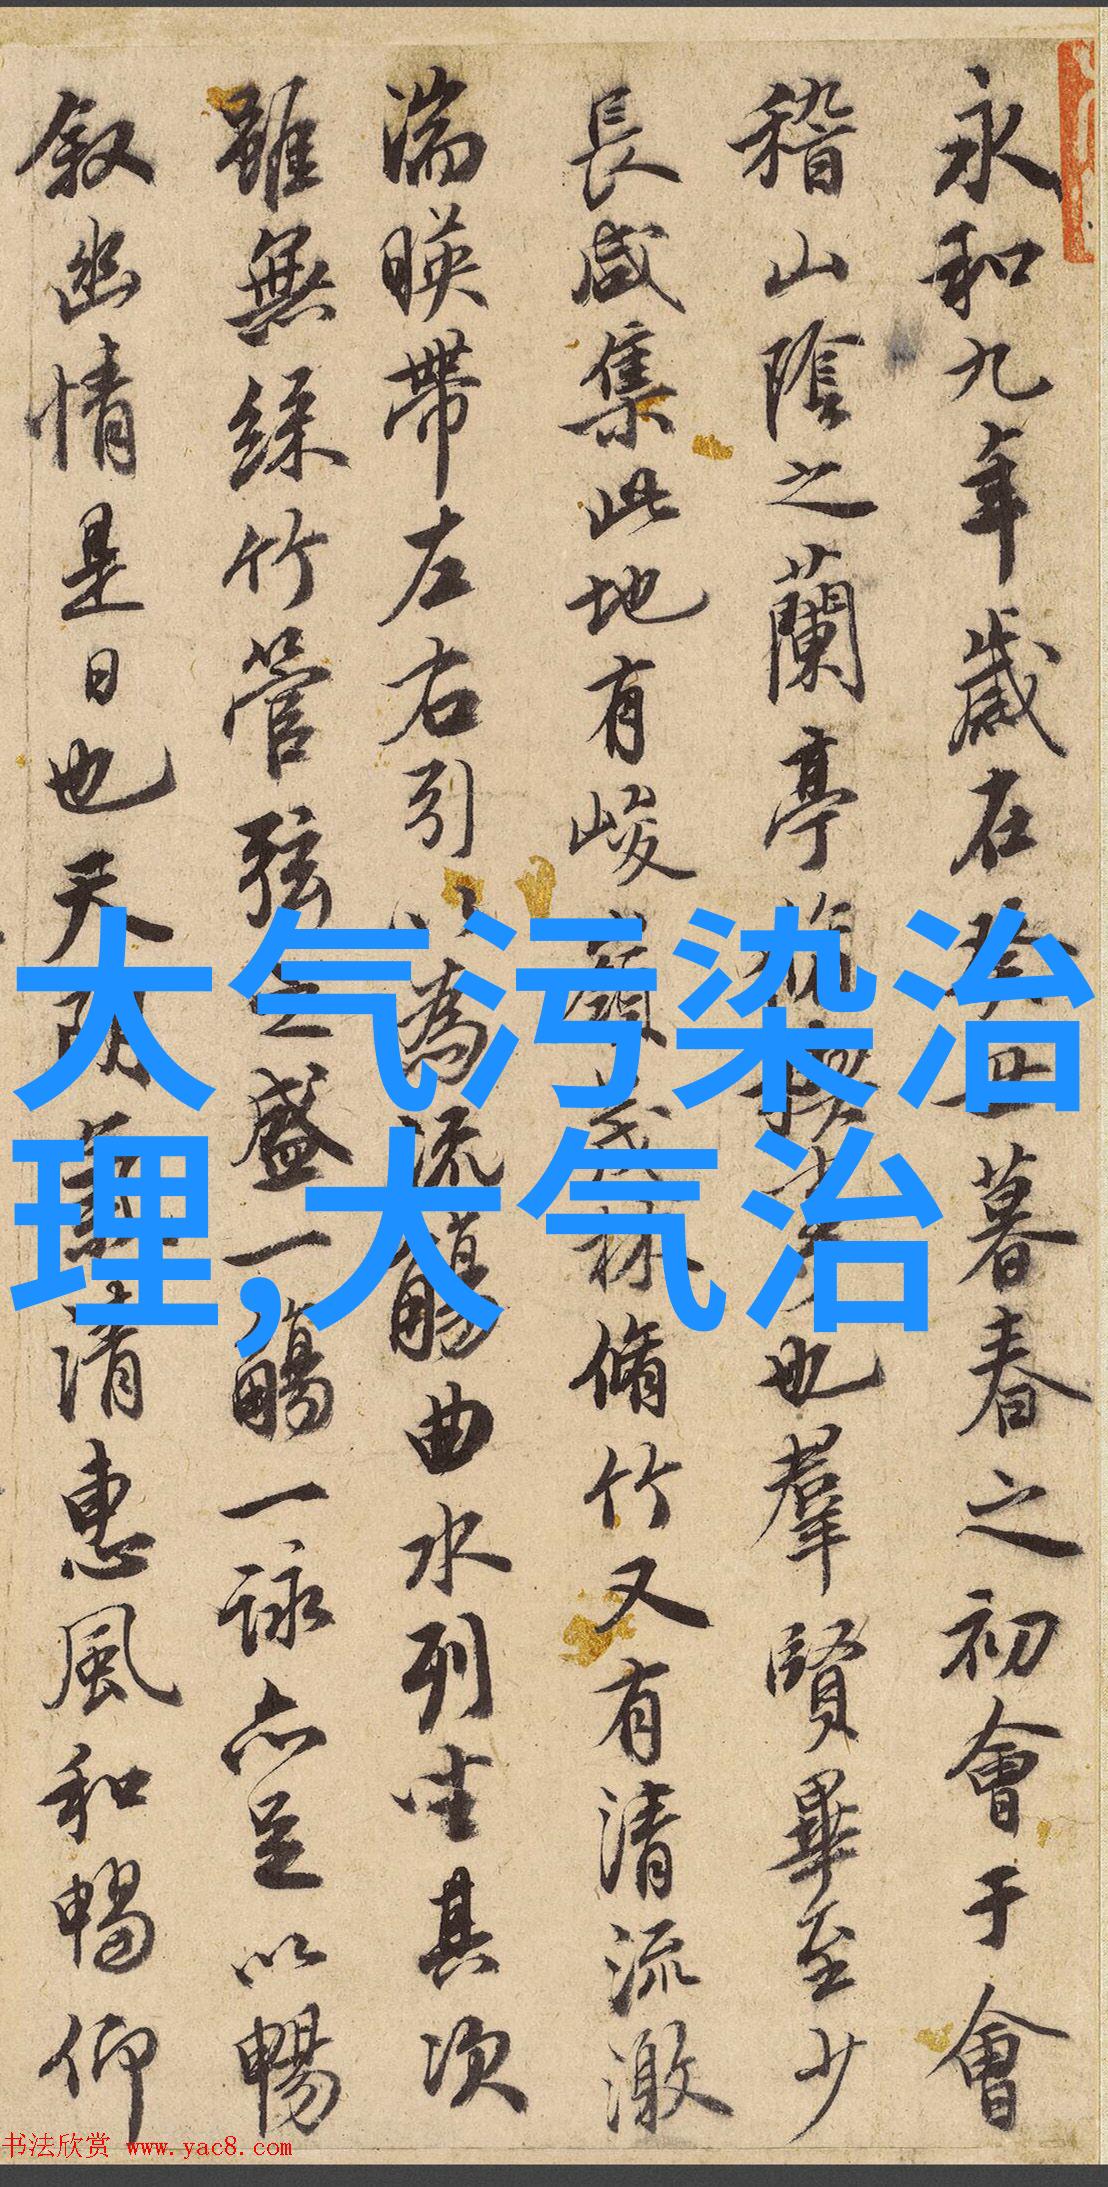 永和九年歲在癸丑暮春之初會于會
稽山陰之蘭亭脩稧事也羣賢畢至少
長咸集此地有峻領茂林脩竹又有清流激
湍暎帶左右引以為流觴曲水列坐其次
雖無絲竹管弦之盛一觴一詠亦足以暢
敘幽情是日也天朗氣清惠風和暢仰
大气污染治
理,大气治
书法欣赏 www.yac8.com